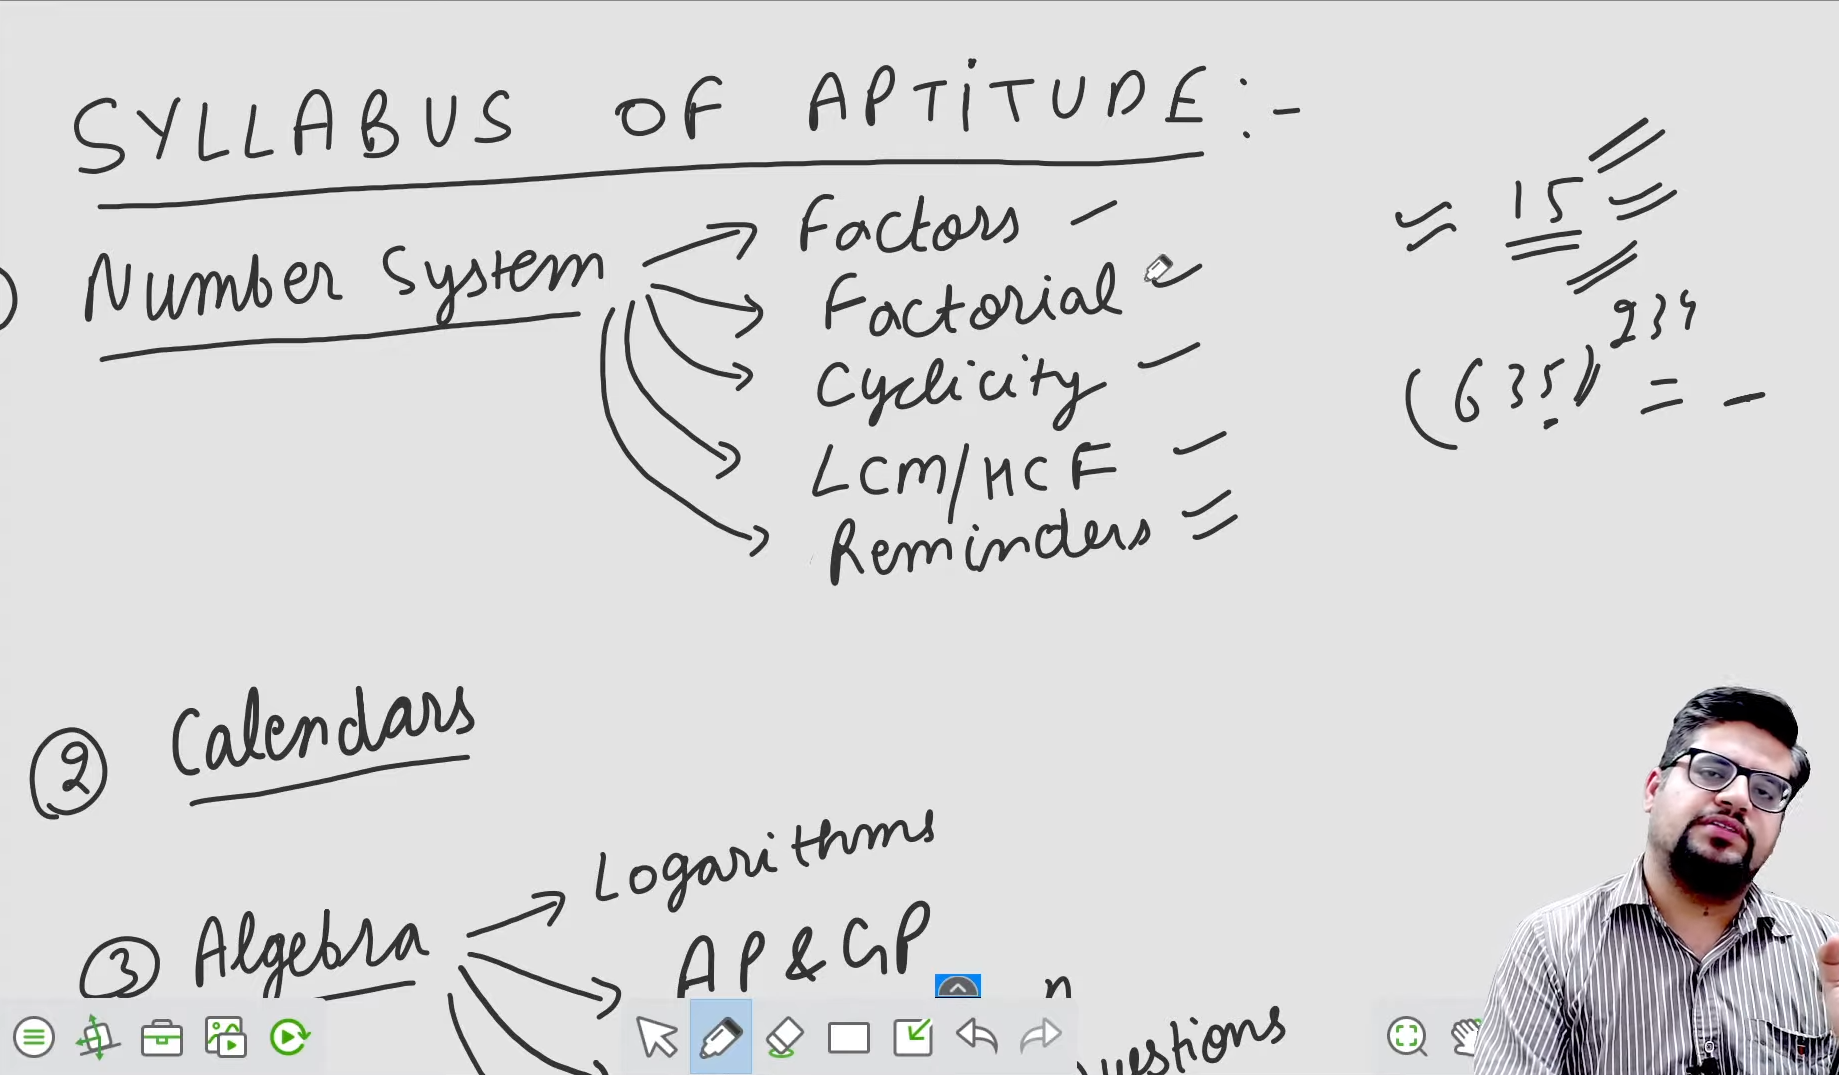 SYLLABUS OF APTITUDE :-
Number System
Factors
Factorial
Cyclicity
LCM/HCF
Reminders
≈ 15
(635)^234 = -
② Calendars
③ Algebra
Logarithms
AP & GP